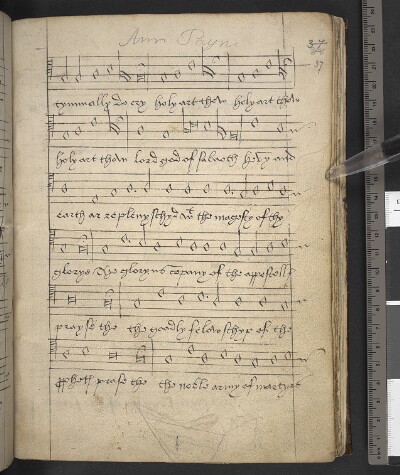 Ann Payn
37
37
tynually do cry holy art thow holy art thow
holy art thow lord god of sabaoth hevy and
earth ar replenyschyd wt the magesty of thy
glorye The gloryus copany of the appostolls
prayse the the goodly felowschyp of the
pphets prase the the noble army of martyrs